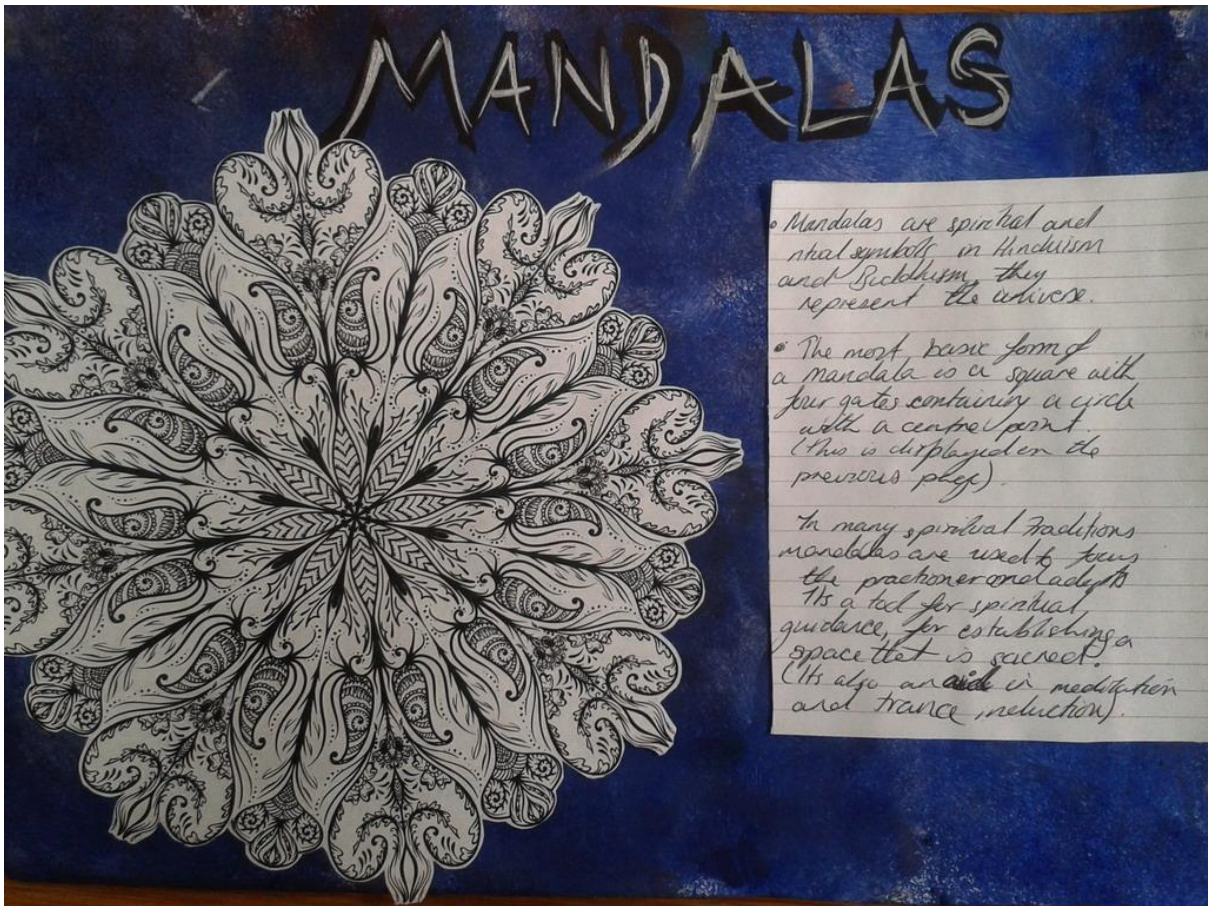 MANDALAS
• Mandalas are spiritual and
ritual symbols in Hinduism
and Buddhism, they
represent the universe.
• The most basic form of
a mandala is a square with
four gates containing a circle
with a centre point.
(This is displayed on the
previous page).
In many spiritual traditions
mandalas are used to focus
the practioner and adepts
Its a tool for spiritual
guidance, for establishing a
space that is sacred.
(Its also an aid in meditation
and trance induction).